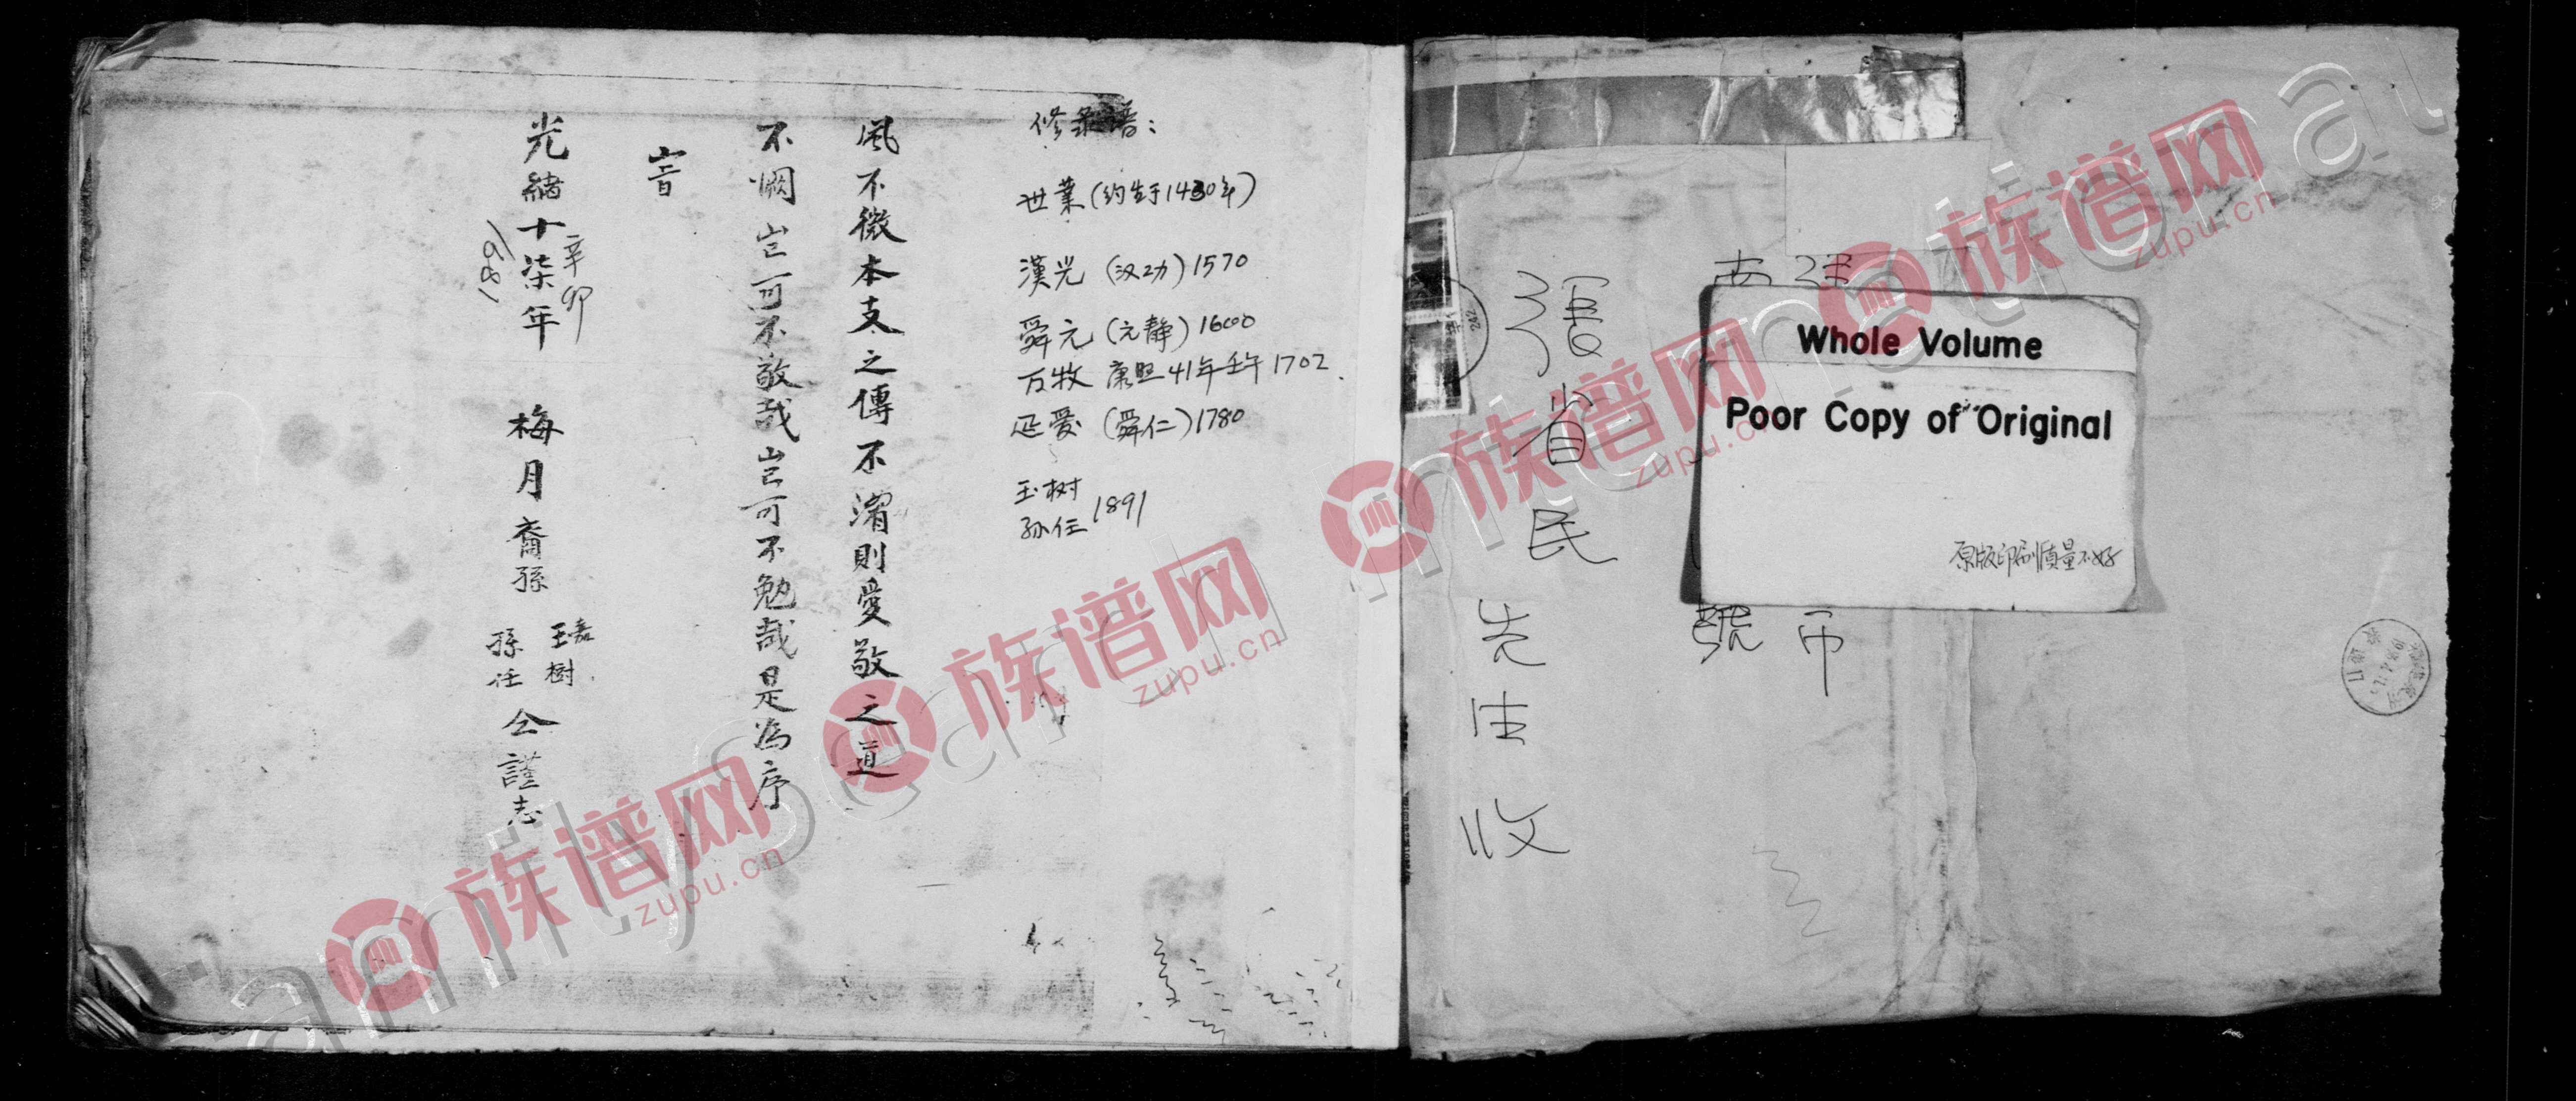 修家谱：
世業（约生于1430年）
漢光（汉功）1570
舜元（元静）1600
万牧 康熙41年壬午1702.
延爱（舜仁）1780
玉树
孙任 1891
風不微本支之傳不湮則愛敬之道
不惘豈可不敬哉豈可不勉哉是為序
旹
光緒十柒年 梅月裔孫
辛卯
1891
玉嘉樹
孫任
仝謹志
省民先生收
號
市
Whole Volume
Poor Copy of Original
原版印刷质量不好
242
族谱网
zupu.cn
族谱网
zupu.cn
族谱网
zupu.cn
族谱网
zupu.cn